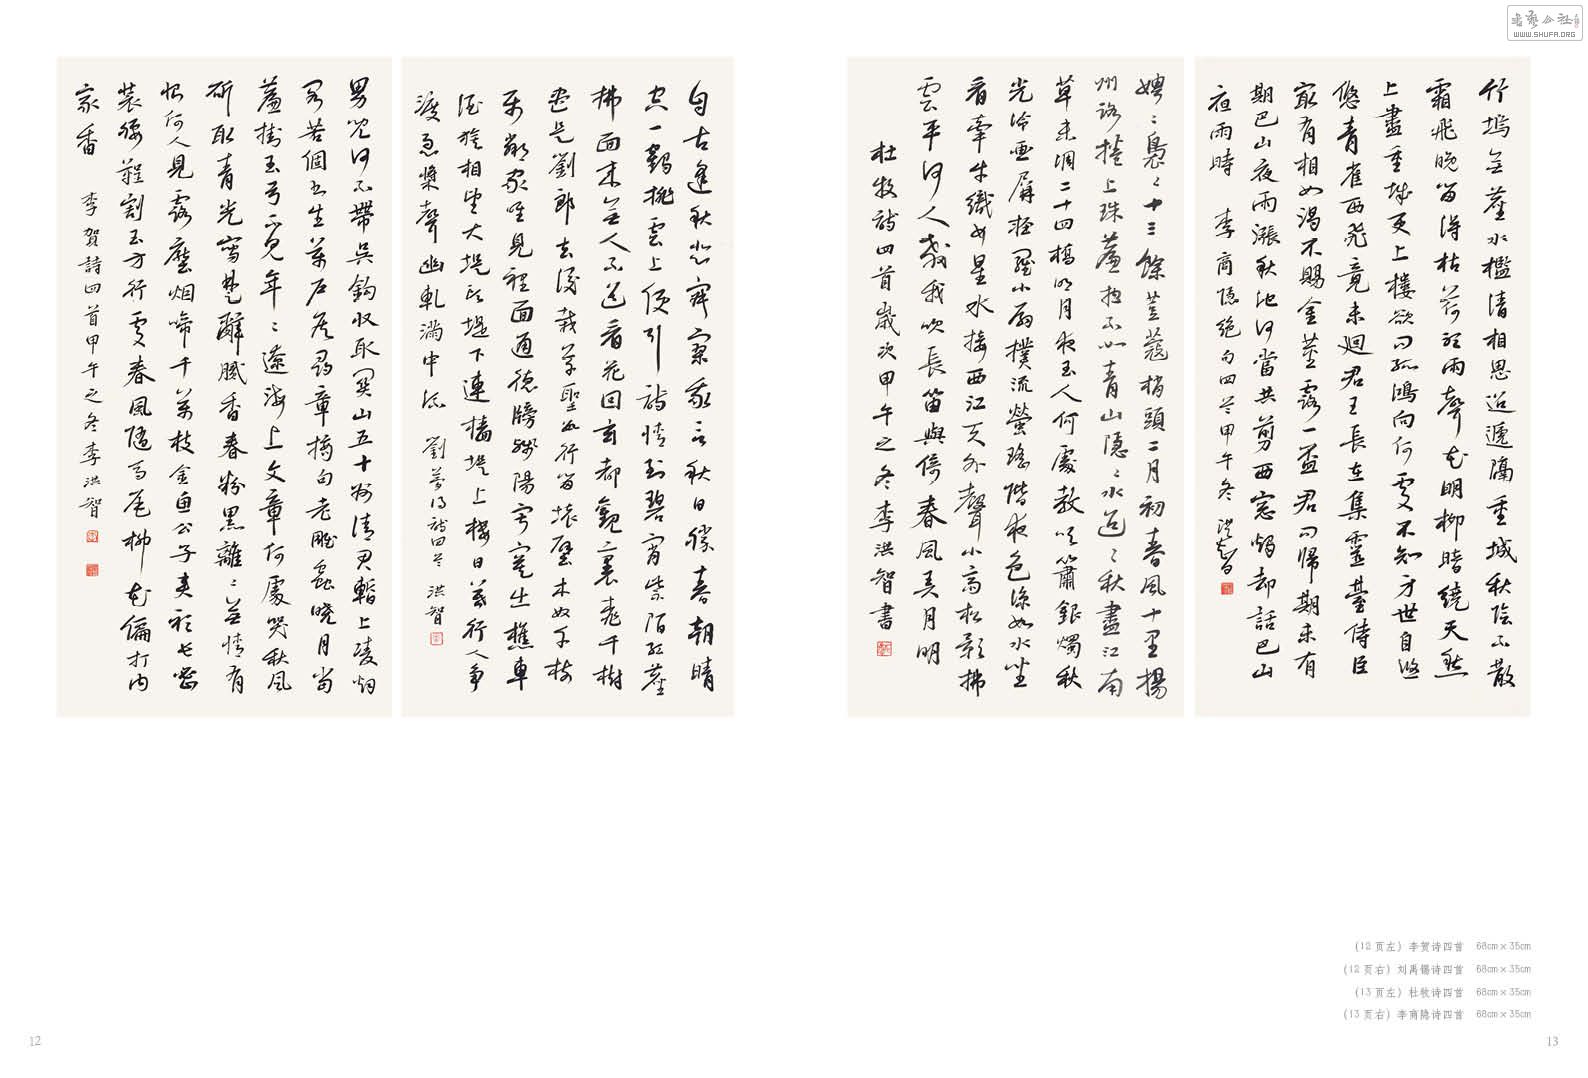 男兒何不帶吳鈎收取關山五十州請君暫上凌烟
閣若個書生萬戶侯尋章摘句老雕蟲曉月當
簾挂玉弓不見年〻遼海上文章何處哭秋風
斫取青光寫楚辭膩香春粉黑離〻無情有
恨何人見露壓烟啼千萬枝金魚公子夾衫長密
裝腰鞓割玉方行處春風隨馬尾柳花偏打内
家香 李賀詩四首甲午之冬李洪智
自古逢秋悲寂寥我言秋日勝春朝晴
空一鶴排雲上便引詩情到碧霄紫陌紅塵
拂面來無人不道看花回玄都觀裏桃千樹
盡是劉郎去後栽草聖數行留壞壁木奴千樹
屬鄰家唯見里門通德牓殘陽寂寞出樵車
酒旗相望大堤頭堤下連檣堤上樓日暮行人爭
渡急槳聲幽軋滿中流 劉夢得詩四首 洪智
娉〻裊〻十三餘荳蔻梢頭二月初春風十里揚
州路捲上珠簾總不如青山隱〻水迢〻秋盡江南
草未凋二十四橋明月夜玉人何處教吹簫銀燭秋
光冷畫屏輕羅小扇撲流螢瑤階夜色涼如水坐
看牽牛織女星水接西江天外聲小齋松影拂
雲平何人教我吹長笛與倚春風弄月明
杜牧詩四首歲次甲午之冬李洪智書
竹塢無塵水檻清相思迢遞隔重城秋陰不散
霜飛晚留得枯荷聽雨聲花明柳暗繞天愁
上盡重城更上樓欲問孤鴻向何處不知身世自悠
悠青雀西飛竟未迴君王長在集靈臺侍臣
最有相如渴不賜金莖露一盃君問歸期未有
期巴山夜雨漲秋池何當共剪西窗燭却話巴山
夜雨時 李商隱絕句四首甲午冬 洪智
(12 页左) 李贺诗四首 68cm×35cm
(12 页右) 刘禹锡诗四首 68cm×35cm
(13 页左) 杜牧诗四首 68cm×35cm
(13 页右) 李商隐诗四首 68cm×35cm
12
13
书艺公社
WWW.SHUFA.ORG